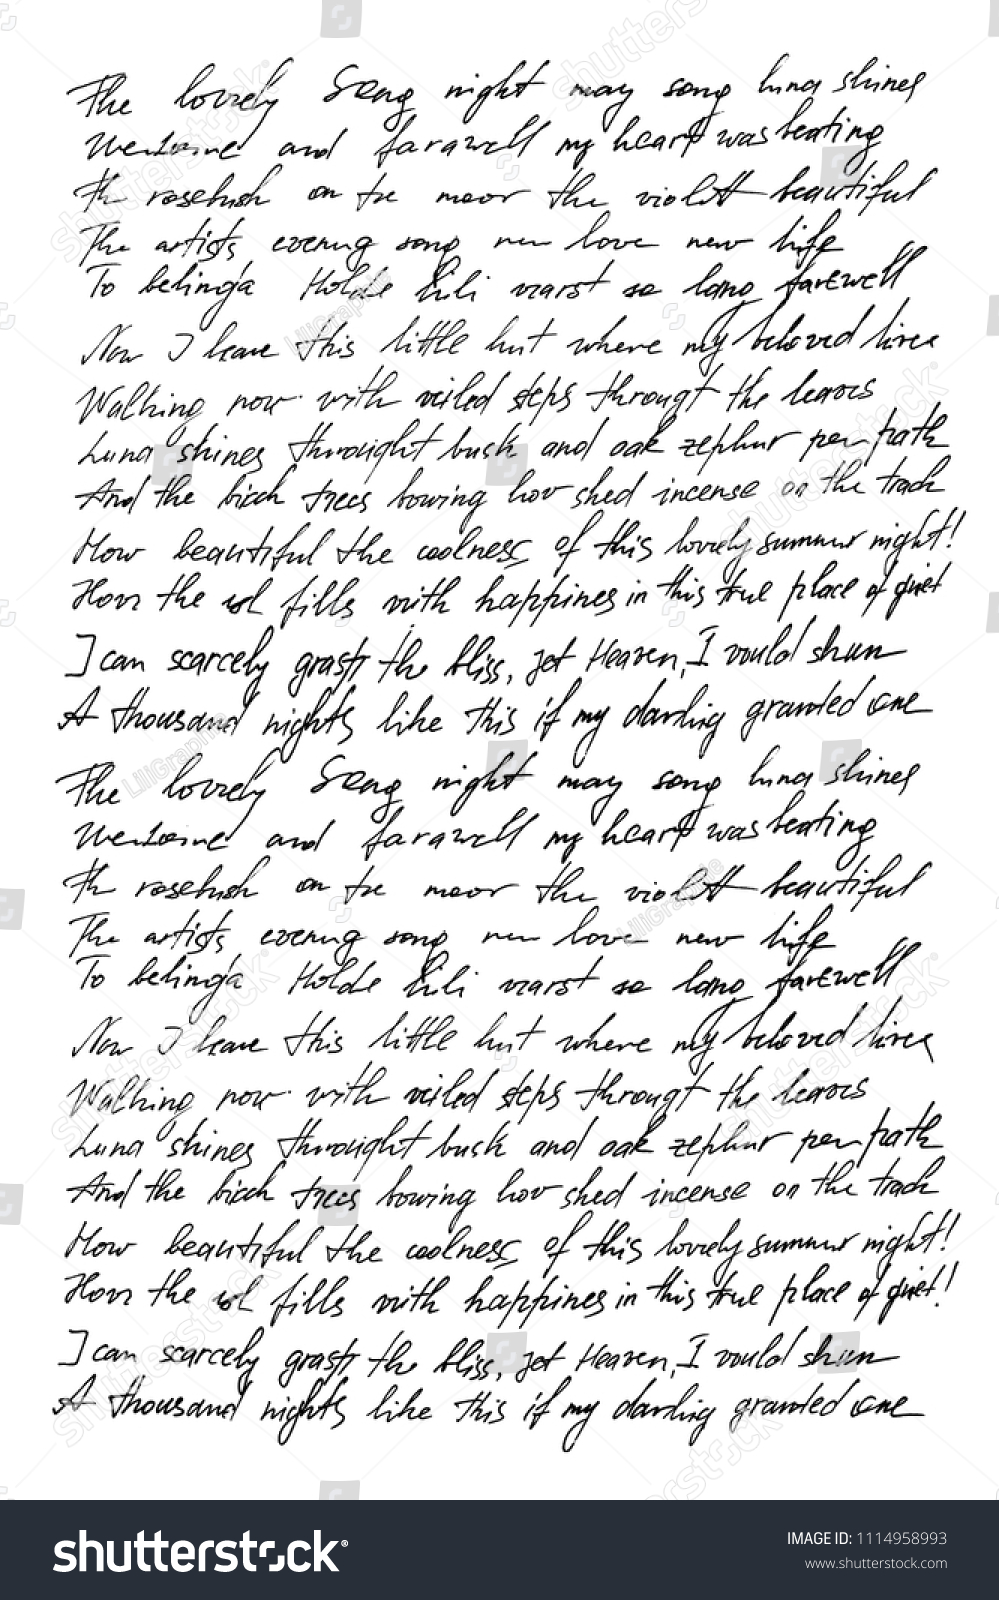 The lovely Song night may song luna shines
Welcome and farawell my heart was beating
Th rosebush on the moor the violett beautiful
The artists evening song new love new life
To belinda Holde Lili warst so lang farewell
Now I leave this little hut where my beloved lives
Walking now with veiled steps througt the leaves
Luna shines throught busk and oak zephur per path
And the birch trees bowing low shed incense on the track
How beautiful the coolness of this lovely summer night!
How the sol fills with happines in this true place of quiet
I can scarcely grasp the bliss, jet Heaven, I would shun
A thousand nights like this if my darling granted one
The lovely Song night may song luna shines
Welcome and farawell my heart was beating
Th rosebush on the moor the violett beautiful
The artists evening song new love new life
To belinda Holde Lili warst so lang farewell
Now I leave this little hut where my beloved lives
Walking now with veiled steps througt the leaves
Luna shines throught busk and oak zephur per path
And the birch trees bowing low shed incense on the track
How beautiful the coolness of this lovely summer night!
How the sol fills with happines in this true place of quiet!
I can scarcely grasp the bliss, jet Heaven, I would shun
A thousand nights like this if my darling granted one
shutterstock
IMAGE ID: 1114958993
www.shutterstock.com